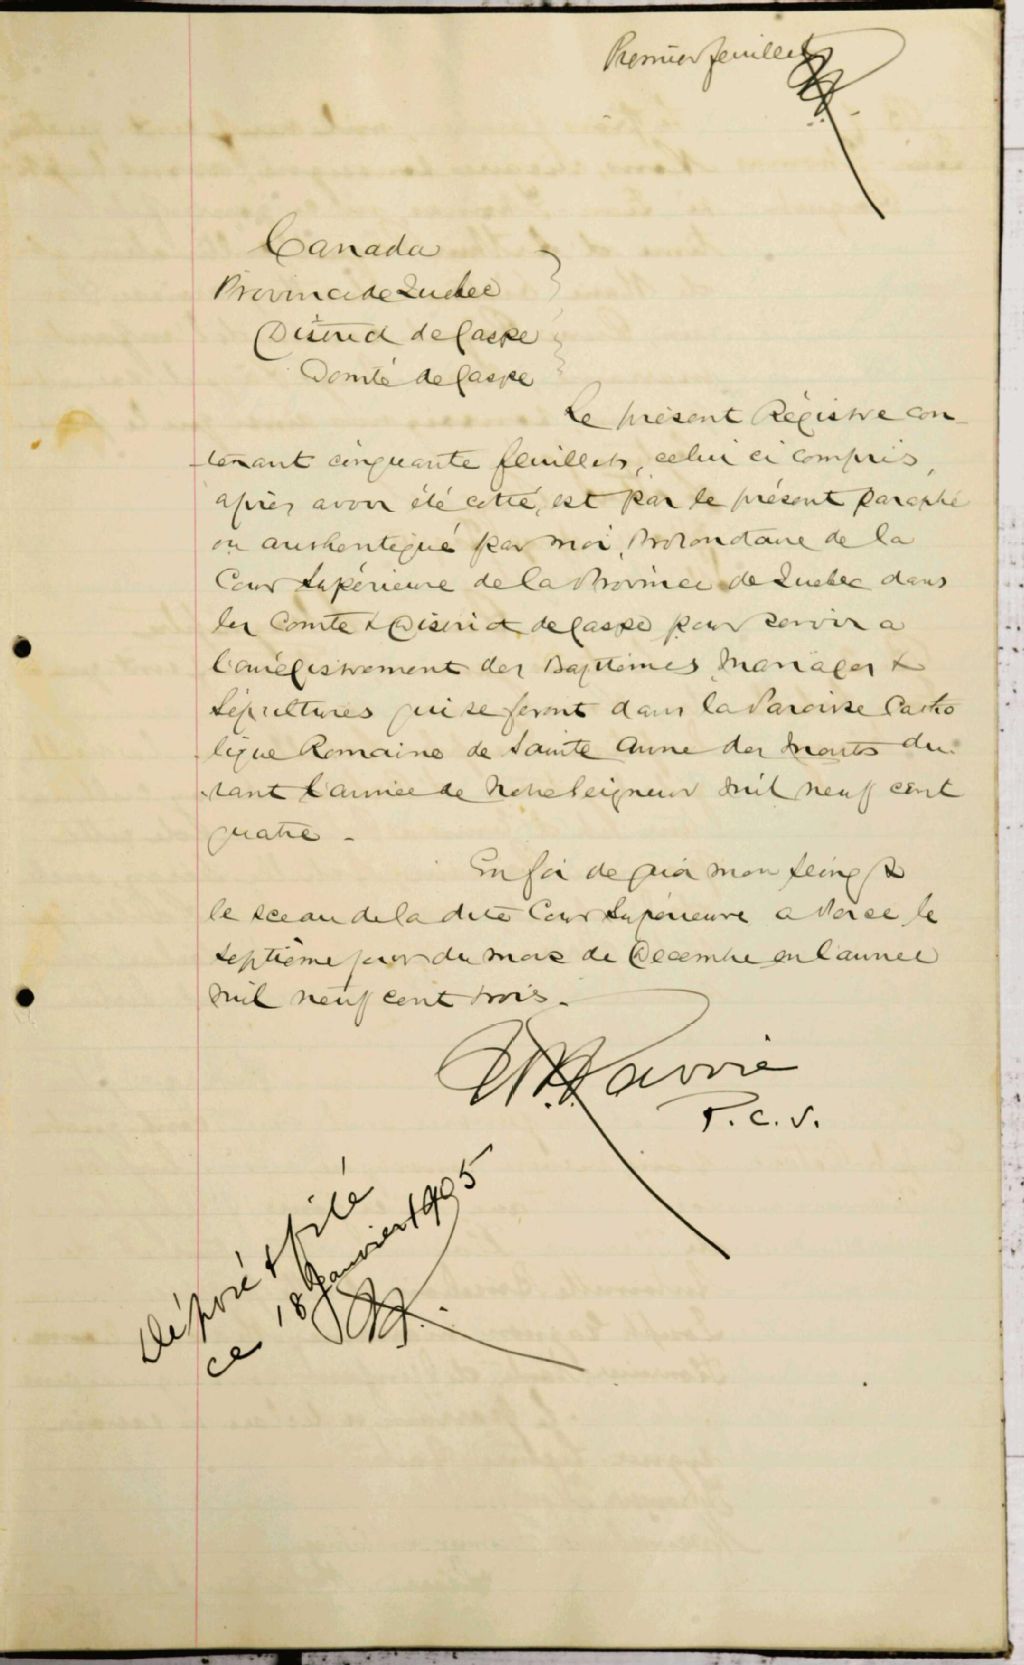 Premier feuillet
Canada
Province de Quebec
District de Gaspe
Comté de Gaspe
Le présent Régistre con-
tenant cinquante feuillets, celui ci compris,
après avoir été cotté, est par le présent paraphé
ou authentiqué par moi, Protonotaire de la
Cour Supérieure de la Province de Quebec dans
les Comté & District de Gaspe pour servir a
l'enrégistrement des Baptêmes, Mariages &
Sépultures qui se feront dans la Paroisse Catho
lique Romaine de Sainte Anne des Monts du-
rant l'année de Notre Seigneur Mil neuf cent
quatre -
En foi de quoi mon seing &
le sceau de la dite Cour Supérieure a Percé le
septième jour du mois de Decembre en l'année
Mil neuf cent trois.
Lavoie
P.C.S.
Déposé & filé
ce 18 Janvier 1905